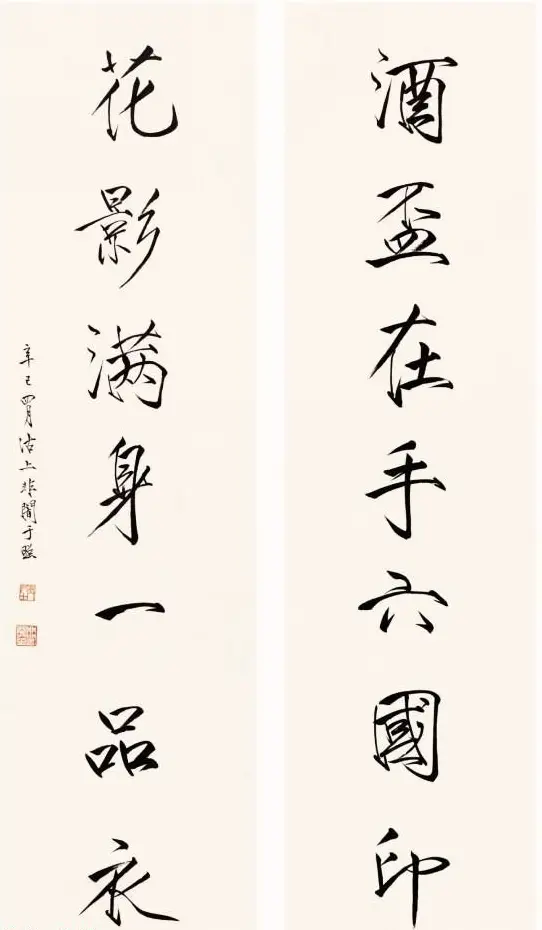 酒盃在手六國印
花影满身一品衣
辛巳四月沽上非闇于照